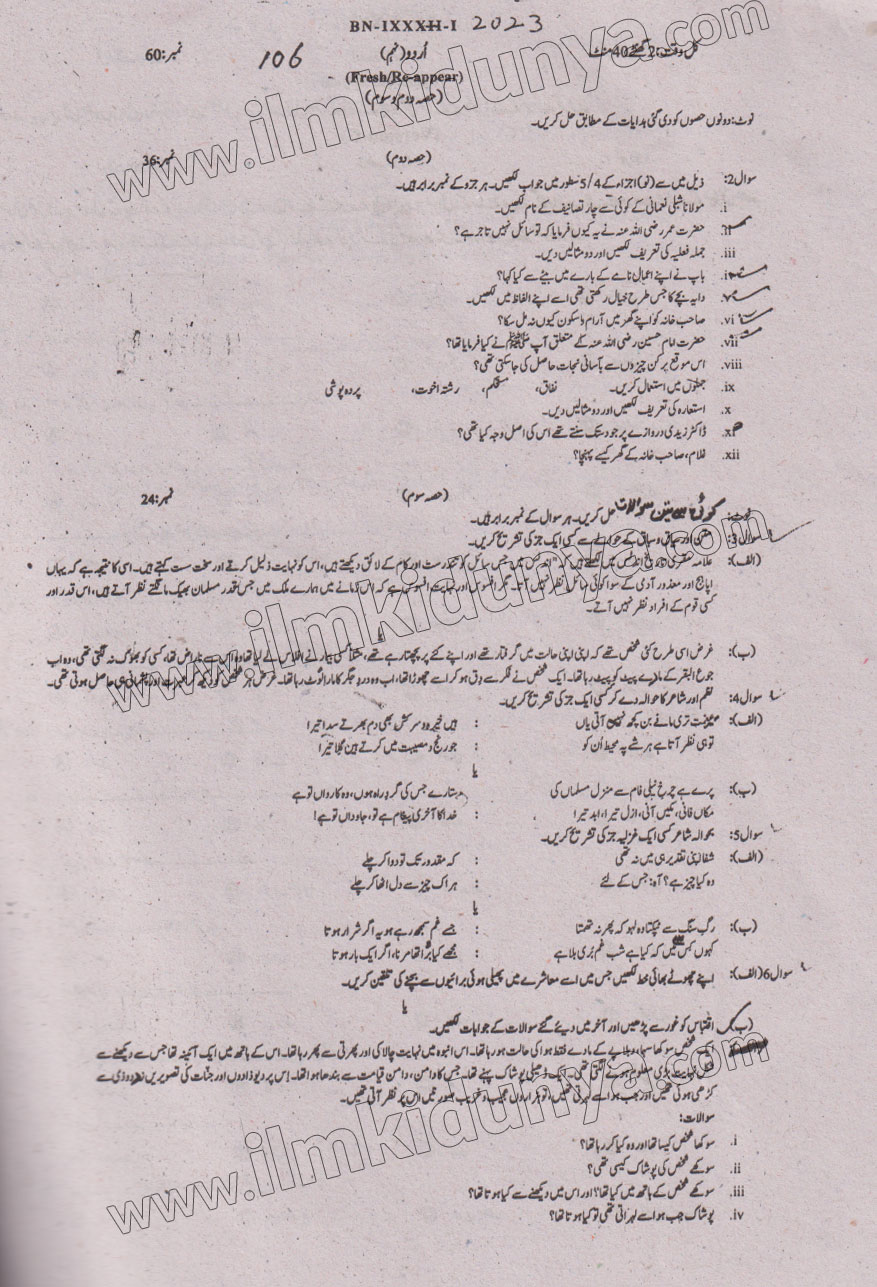 BN-IXXXII-I 2023
کل وقت: 2 گھنٹے 40 منٹ اُردو (نہم) 106 نمبر: 60
(Fresh/Re-appear)
(حصہ دوم و سوم)
نوٹ: دونوں حصوں کو دی گئی ہدایات کے مطابق حل کریں۔
(حصہ دوم) نمبر: 36
سوال2: ذیل میں سے (نو) اجزاء کے 5/4 سطور میں جواب لکھیں۔ ہر جزو کے نمبر برابر ہیں۔
i. مولانا شبلی نعمانی کے کوئی سے چار تصانیف کے نام لکھیں۔
ii. حضرت عمر رضی اللہ عنہ نے یہ کیوں فرمایا کہ تو سائل نہیں تاجر ہے؟
iii. جملہ فعلیہ کی تعریف لکھیں اور دو مثالیں دیں۔
iv. باپ نے اپنے اعمال نامے کے بارے میں بیٹے سے کیا کہا؟
v. دایہ بچے کا جس طرح خیال رکھتی تھی اسے اپنے الفاظ میں لکھیں۔
vi. صاحب خانہ کو اپنے گھر میں آرام و سکون کیوں نہ مل سکا؟
vii. حضرت امام حسین رضی اللہ عنہ کے متعلق آپ ﷺ نے کیا فرمایا تھا؟
viii. اس موقع پر کن چیزوں سے بآسانی نجات حاصل کی جاسکتی تھی؟
ix. جملوں میں استعمال کریں۔ نفاق، مستحکم، رشتہ اخوت، پردہ پوشی
x. استعارہ کی تعریف لکھیں اور دو مثالیں دیں۔
xi. ڈاکٹر زیدی دروازے پر جو دستک سنتے تھے اس کی اصل وجہ کیا تھی؟
xii. غلام، صاحب خانہ کے گھر کیسے پہنچا؟
(حصہ سوم) نمبر: 24
نوٹ: کوئی سے تین سوالات حل کریں۔ ہر سوال کے نمبر برابر ہیں۔
سوال3: متن اور سیاق و سباق کے حوالے سے کسی ایک جز کی تشریح کریں۔
(الف): علامہ مقری تاریخ اندلس میں لکھتے ہیں کہ "اندلس میں جس سائل کو تندرست اور کام کے لائق دیکھتے ہیں، اس کو نہایت ذلیل کرتے اور سخت ست کہتے ہیں۔ اسی کا نتیجہ ہے کہ یہاں
اپاہج اور معذور آدمی کے سوا کوئی سائل نظر نہیں آتا۔ مگر افسوس اور نہایت افسوس ہے کہ اس زمانے میں ہمارے ملک میں جس قدر مسلمان بھیک مانگتے نظر آتے ہیں، اس قدر اور
کسی قوم کے افراد نظر نہیں آتے۔
یا
(ب): غرض اسی طرح کئی شخص تھے کہ اپنی اپنی حالت میں گرفتار تھے اور اپنے کئے پر پچھتا رہے تھے، مثلاً کسی بیمار نے افلاس لے لیا تھا وہ اس سے ناراض تھا، کسی کو بھوک نہ لگتی تھی، وہ اب
جوع البقر کے مارے پیٹ کو پیٹ رہا تھا۔ ایک شخص نے فکر سے دق ہو کر اسے چھوڑا تھا، اب وہ درد جگر کا مارا لوٹ رہا تھا۔ غرض ہر شخص کو دیکھ کر عبرت اور پشیمانی ہی حاصل ہوتی تھی۔
سوال4: نظم اور شاعر کا حوالہ دے کر کسی ایک جز کی تشریح کریں۔
(الف): عظمت تری مانے بن کچھ نہیں آتی یاں : ہیں خیرہ و سرکش بھی دم بھرتے سدا تیرا
تو ہی نظر آتا ہے ہر شے پہ محیط اُن کو : جو رنج و مصیبت میں کرتے ہین گلا تیرا
یا
(ب): پرے ہے چرخ نیلی فام سے منزل مسلماں کی : ستارے جس کی گرد راہ ہوں، وہ کارواں تو ہے
مکاں فانی، مکیں آنی، ازل تیرا، ابد تیرا : خدا کا آخری پیغام ہے تو، جاوداں تو ہے!
سوال5: بحوالہ شاعر کسی ایک غزلیہ جز کی تشریح کریں۔
(الف): شفا اپنی تقدیر ہی میں نہ تھی : کہ مقدور تک تو دوا کر چلے
وہ کیا چیز ہے؟ آہ: جس کے لئے : ہر اک چیز سے دل اٹھا کر چلے
یا
(ب): رگِ سنگ سے ٹپکتا وہ لہو کہ پھر نہ تھمتا : جسے غم سمجھ رہے ہو یہ اگر شرار ہوتا
کہوں کس سے میں کہ کیا ہے شب غم بُری بلا ہے : مجھے کیا بُرا تھا مرنا، اگر ایک بار ہوتا
سوال6 (الف): اپنے چھوٹے بھائی خط لکھیں جس میں اسے معاشرے میں پھیلی ہوئی برائیوں سے بچنے کی تلقین کریں۔
یا
(ب) اقتباس کو غور سے پڑھیں اور آخر میں دیئے گئے سوالات کے جوابات لکھیں۔
ایک شخص سوکھا سہما، دبلاپے کے مارے فقط ہوا کی حالت ہو رہا تھا۔ اس انبوہ میں نہایت چالاکی اور پھرتی سے پھر رہا تھا۔ اس کے ہاتھ میں ایک آئینہ تھا جس سے دیکھنے سے
شکل نہایت بڑی معلوم ہونے لگتی تھی۔ ایک ڈھیلی پوشاک پہنے تھا۔ جس کا دامن، دامن قیامت سے بندھا ہوا تھا۔ اس پر دیو ذادوں اور جنات کی تصویریں زردوزی سے
کڑھی ہوئی تھیں اور جب ہوا سے لہرتی تھیں، تو ہزاروں عجیب و غریب صورتیں اس پر نظر آتی تھیں۔
سوالات:
i. سوکھا شخص کیسا تھا اور وہ کیا کر رہا تھا؟
ii. سوکھے شخص کی پوشاک کیسی تھی؟
iii. سوکھے شخص کے ہاتھ میں کیا تھا؟ اور اس میں دیکھنے سے کیا ہوتا تھا؟
iv. پوشاک جب ہوا سے لہراتی تھی تو کیا ہوتا تھا؟
www.ilmkidunya.com
www.ilmkidunya.com
www.ilmkidunya.com